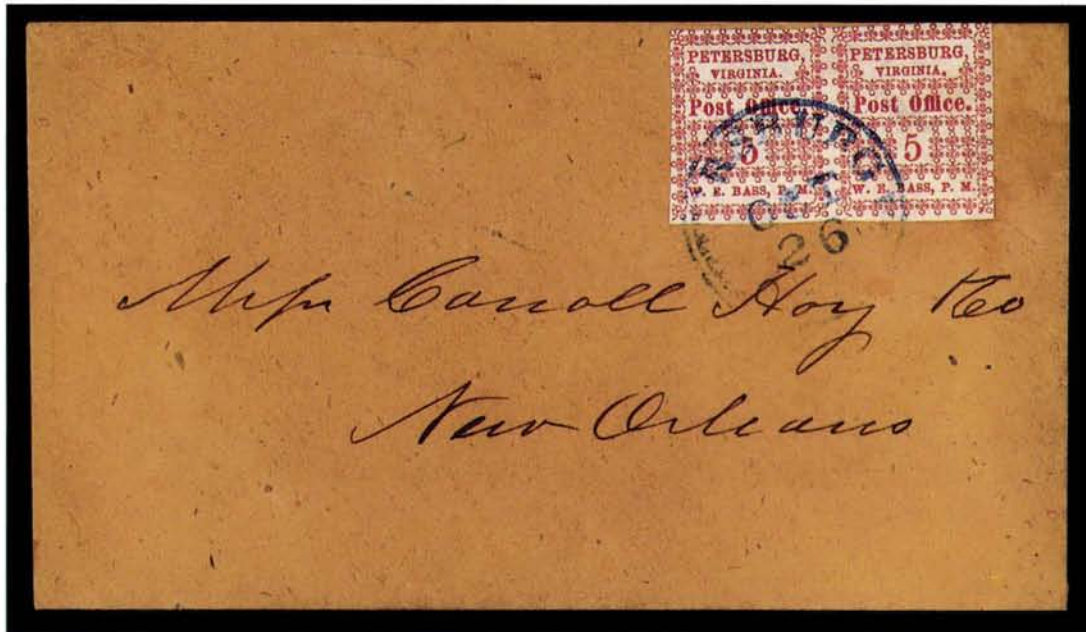 PETERSBURG,
VIRGINIA.
Post Office.
5
W. E. BASS, P. M.
PETERSBURG,
VIRGINIA.
Post Office.
5
W. E. BASS, P. M.
RSBURG
26
Messr Carroll Hoy & Co
New Orleans